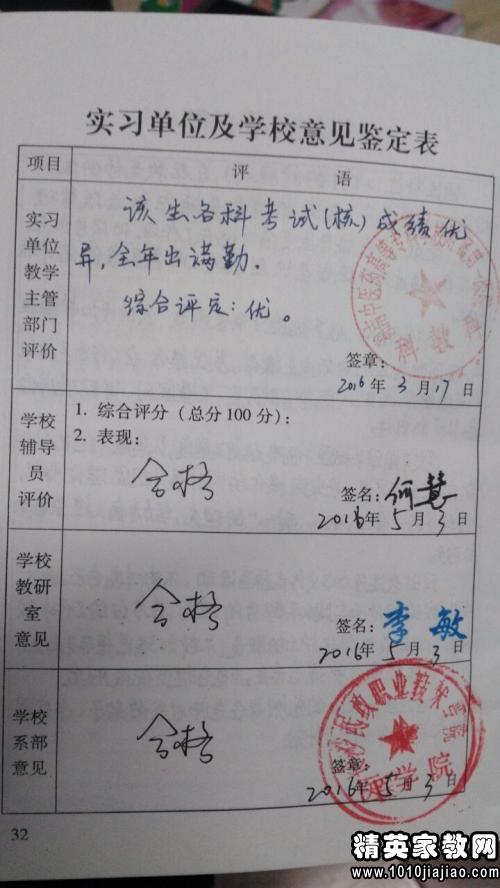 实习单位及学校意见鉴定表
项目
评 语
实习
单位
教学
主管
部门
评价
该生各科考试(核)成绩优
异,全年出满勤.
综合评定:优。
科教
签章:
2016年3月17日
学校
辅导
员
评价
1. 综合评分(总分100分):
2. 表现:
合格
签名:何慧
2016年5月3日
学校
教研
室
意见
合格
签名:李敏
2016年5月3日
学校
系部
意见
合格
民政职业技术学院
医学院
签章:
2016年5月3日
32
精英家教网
www.1010jiajiao.com